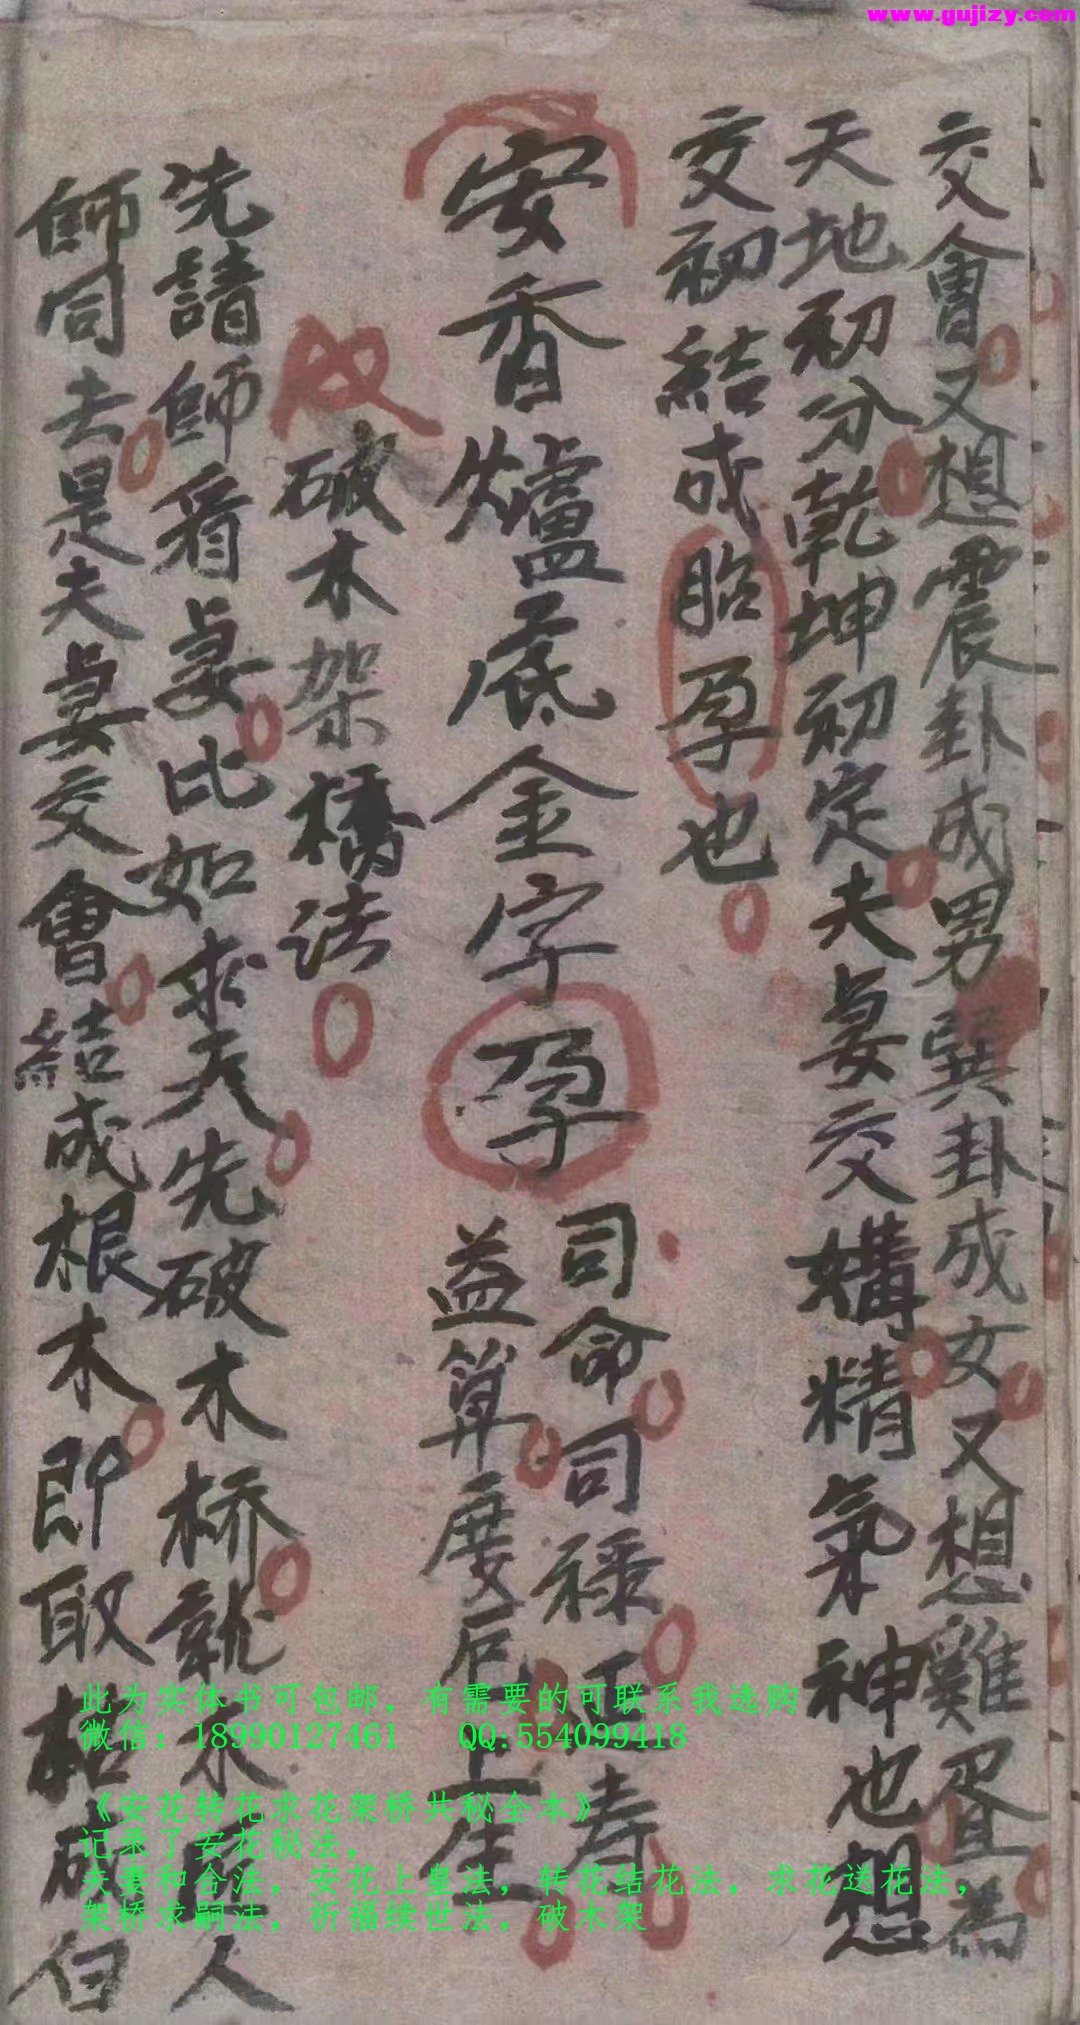 www.gujizy.com
交會又想震卦成男巽卦成女又想雞蛋為
天地初分乾坤初定夫妻交媾精氣神也想
交初結成胎孕也
安香爐底金字孕
司命司祿延寿
益算度厄上生
破木架橋法
先請師看妻比如求夫先破木桥就木人
師同去是夫妻交會結成根木即取破白
此为实体书可包邮，有需要的可联系我选购
微信：18990127461 QQ:554099418
《安花转花求花架桥共秘全本》
记录了安花秘法，
夫妻和合法，安花上皇法，转花结花法，求花送花法，
架桥求嗣法，祈福续世法，破木架